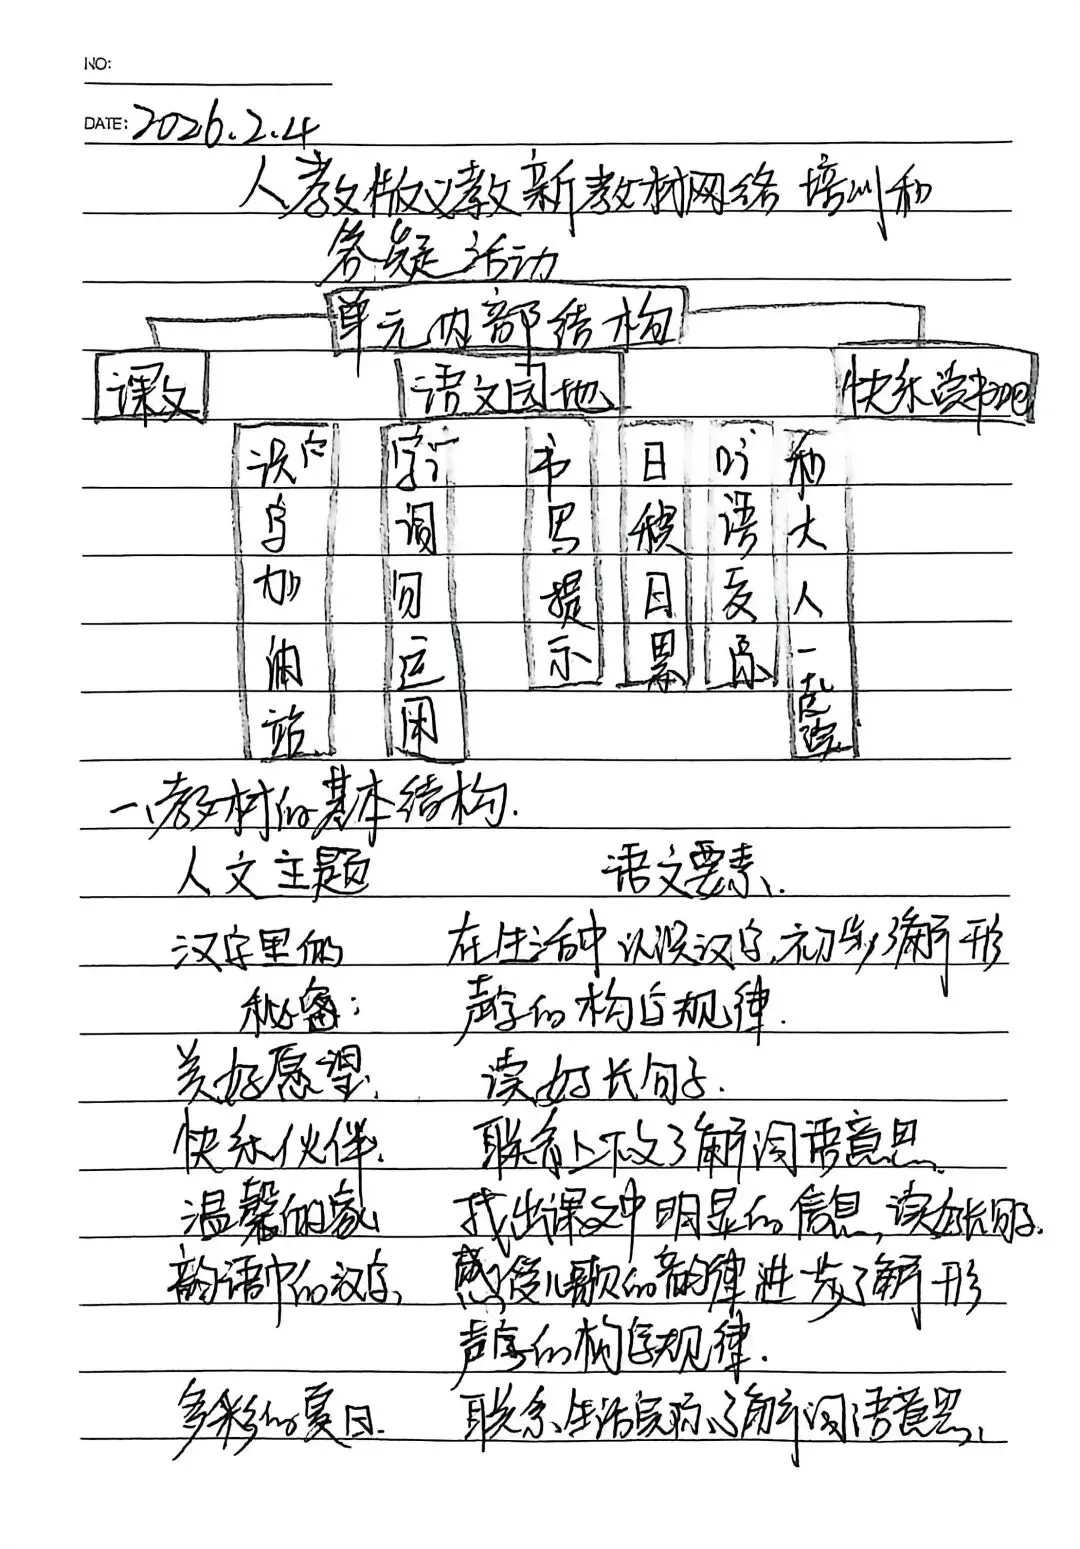 NO:
DATE: 2026.2.4
人教版义教新教材网络培训和
答疑活动
单元内部结构
课文
语文园地
快乐读书吧
识字加油站
字词句运用
书写提示
日积月累
和大人一起读
一、教材的基本结构.
人文主题 语文要素.
汉字里的 在生活中认识汉字,初步了解形
秘密: 声字的构字规律.
美好愿望. 读好长句子.
快乐伙伴. 联系上下文了解词语意思.
温馨的家. 找出课文中明显的信息,读好长句子.
韵语中的汉字. 感受儿歌的韵律进一步了解形
声字的构字规律.
多彩的夏日. 联系生活实际了解词语意思.